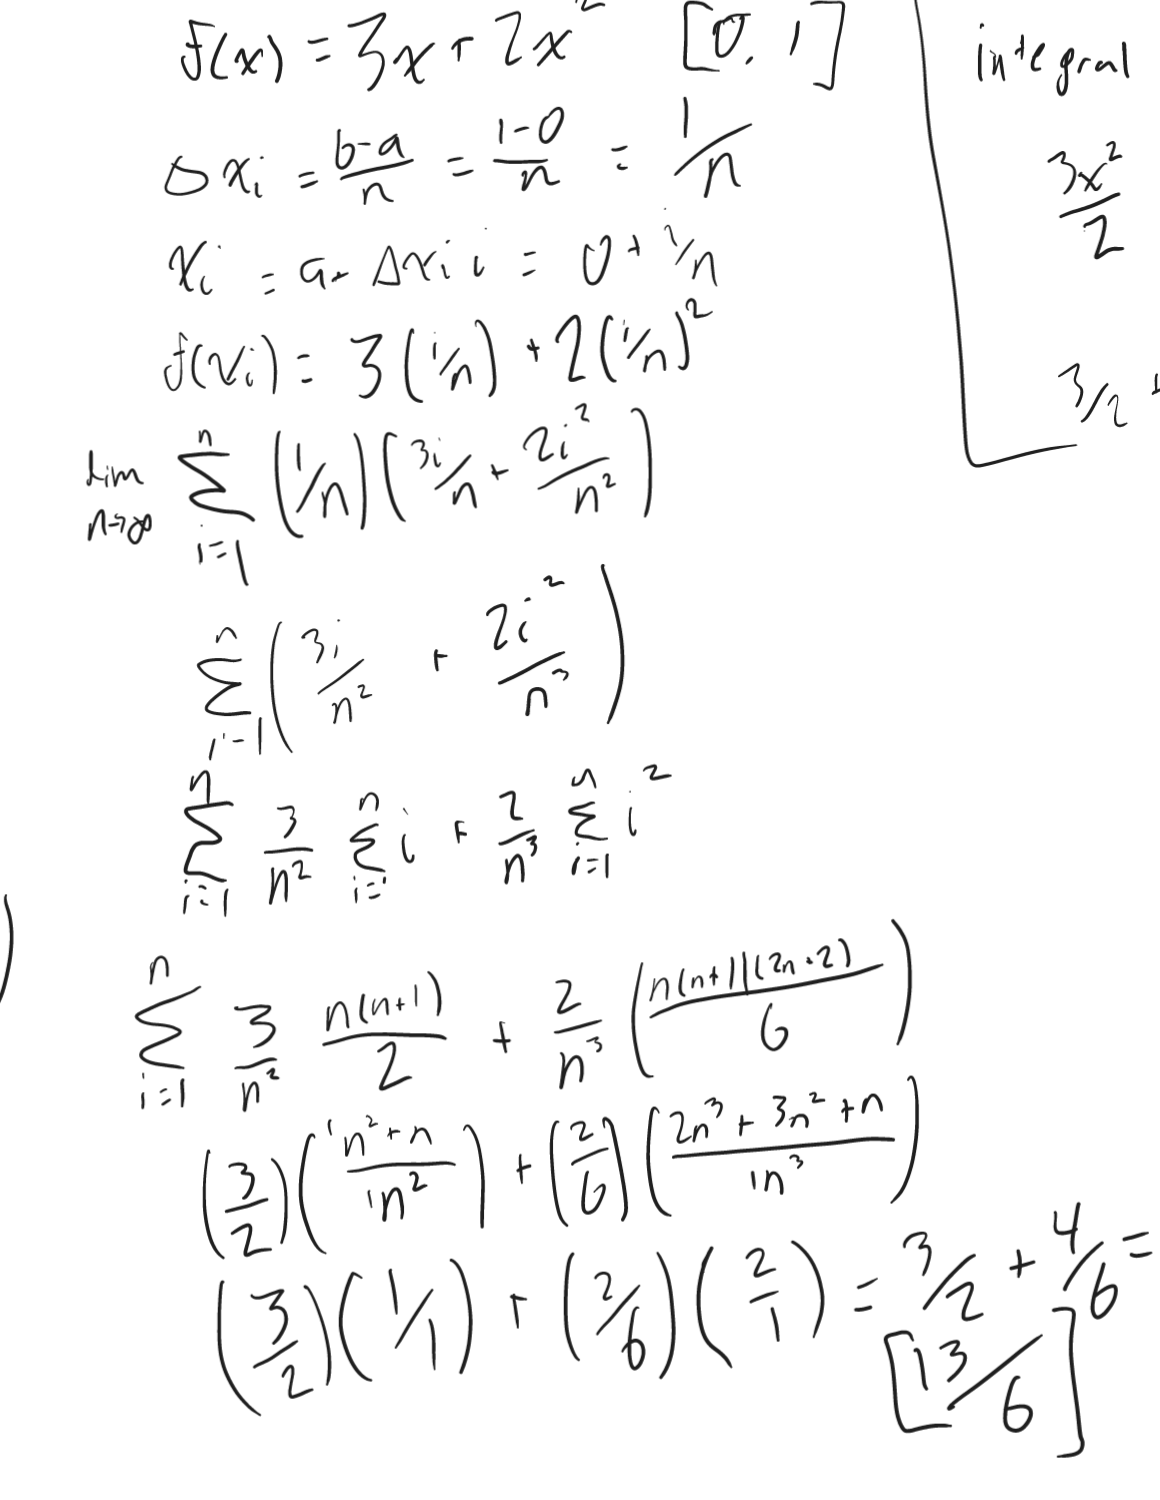 f(x) = 3x + 2x² [0, 1]
Δxᵢ = b-a/n = 1-0/n = 1/n
xᵢ = a + Δxᵢ i = 0 + i/n
f(xᵢ) = 3(i/n) + 2(i/n)²
lim n→∞ Σ i=1 n (1/n)(3i/n + 2i²/n²)
Σ i=1 n (3i/n² + 2i²/n³)
Σ i=1 n 3/n² Σ i=1 n i + 2/n³ Σ i=1 n i²
Σ i=1 n 3/n² n(n+1)/2 + 2/n³ (n(n+1)(2n+2)/6)
(3/2)(1n²+n/1n²) + (2/6)(2n³+3n²+n/1n³)
(3/2)(1/1) + (2/6)(2/1) = 3/2 + 4/6 =
[13/6]
integral
3x²/2
3/2 +